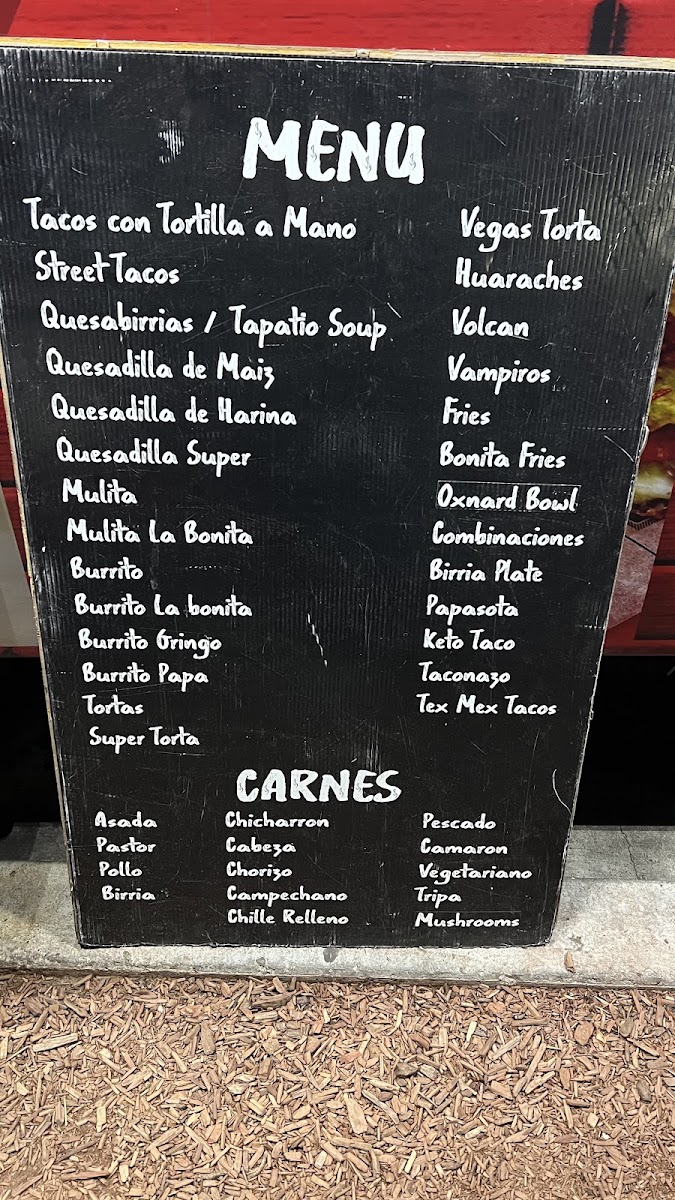 MENU
Tacos con Tortilla a Mano
Street Tacos
Quesabirrias / Tapatio Soup
Quesadilla de Maiz
Quesadilla de Harina
Quesadilla Super
Mulita
Mulita La Bonita
Burrito
Burrito La bonita
Burrito Gringo
Burrito Papa
Tortas
Super Torta
Vegas Torta
Huaraches
Volcan
Vampiros
Fries
Bonita Fries
Oxnard Bowl
Combinaciones
Birria Plate
Papasota
Keto Taco
Taconazo
Tex Mex Tacos
CARNES
Asada
Pastor
Pollo
Birria
Chicharron
Cabeza
Chorizo
Campechano
Chille Relleno
Pescado
Camaron
Vegetariano
Tripa
Mushrooms